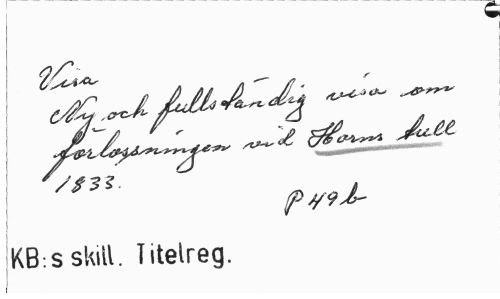 Visa
Ny och fullständig visa om
förlossningen vid Horns tull
1833.
P 49 b
KB:s skill. Titelreg.